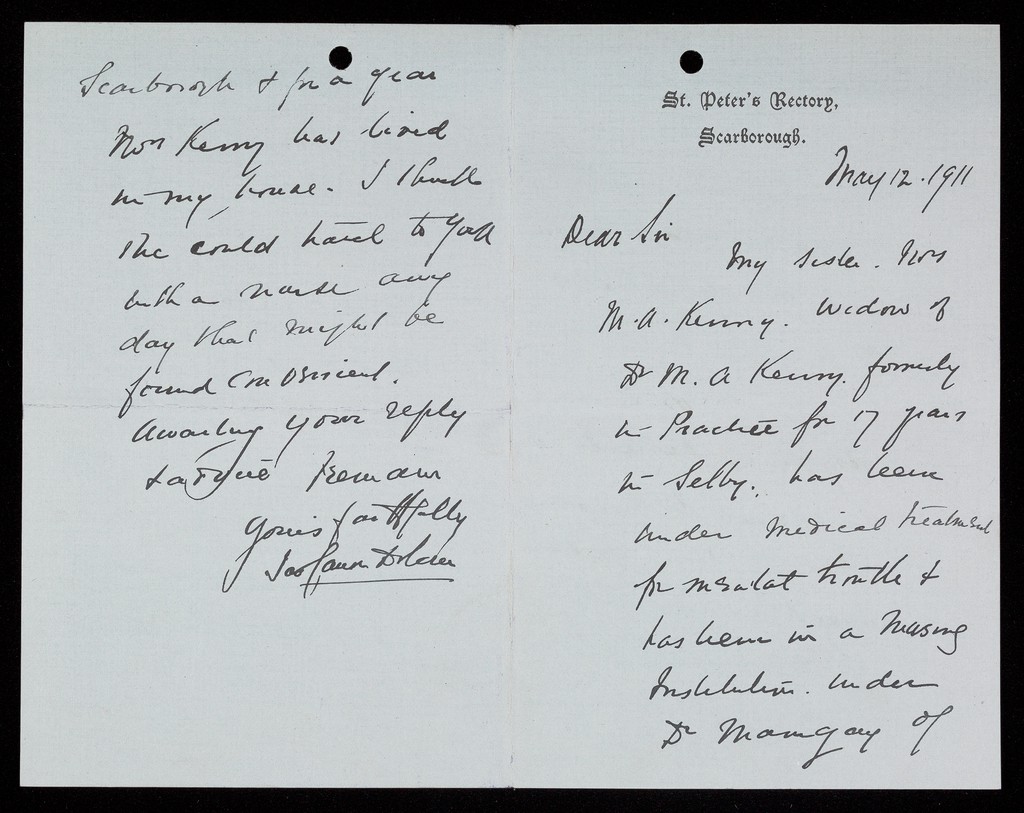 St. Peter's Rectory,
Scarborough.
May 12. 1911
Dear Sir
My sister. Mrs
M. A. Kenny. widow of
Dr M. A Kenny. formerly
in Practice for 17 years
in Selby., has been
under medical treatment
for mental trouble &
has been in a Nursing
Institution. under
Dr of
Scarborough & for a year
Mrs Kenny has lived
in my house. I think
she could travel to York
with a nurse any
day that might be
found convenient.
Awaiting your reply
I remain
Yours faithfully